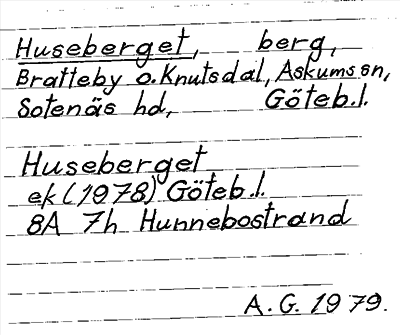 Huseberget, berg,
Bratteby o. Knutsdal, Askums sn,
Sotenäs hd, Göteb.l.
Huseberget
ek (1978) Göteb.l.
8A 7h Hunnebostrand
A.G. 1979.